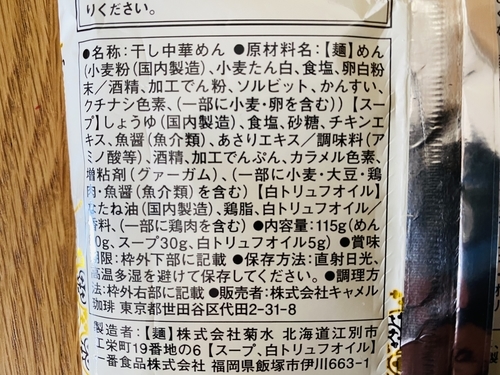 りください。
●名称:干し中華めん ●原材料名:【麺】めん
(小麦粉(国内製造)、小麦たん白、食塩、卵白粉
末/酒精、加工でん粉、ソルビット、かんすい、
クチナシ色素、(一部に小麦・卵を含む))【スー
プ】しょうゆ(国内製造)、食塩、砂糖、チキンエ
キス、魚醤(魚介類)、あさりエキス/調味料(ア
ミノ酸等)、酒精、加工でんぷん、カラメル色素、
増粘剤(グァーガム)、(一部に小麦・大豆・鶏
肉・魚醤(魚介類)を含む)【白トリュフオイル】
なたね油(国内製造)、鶏脂、白トリュフオイル/
香料、(一部に鶏肉を含む) ●内容量:115g(めん
0g、スープ30g、白トリュフオイル5g) ●賞味
期限:枠外下部に記載 ●保存方法:直射日光、
高温多湿を避けて保存してください。 ●調理方
法:枠外右部に記載 ●販売者:株式会社キャメル
珈琲 東京都世田谷区代田2-31-8
製造者:【麺】株式会社菊水 北海道江別市
工栄町19番地の6【スープ、白トリュフオイル】
一番食品株式会社 福岡県飯塚市伊川663-1